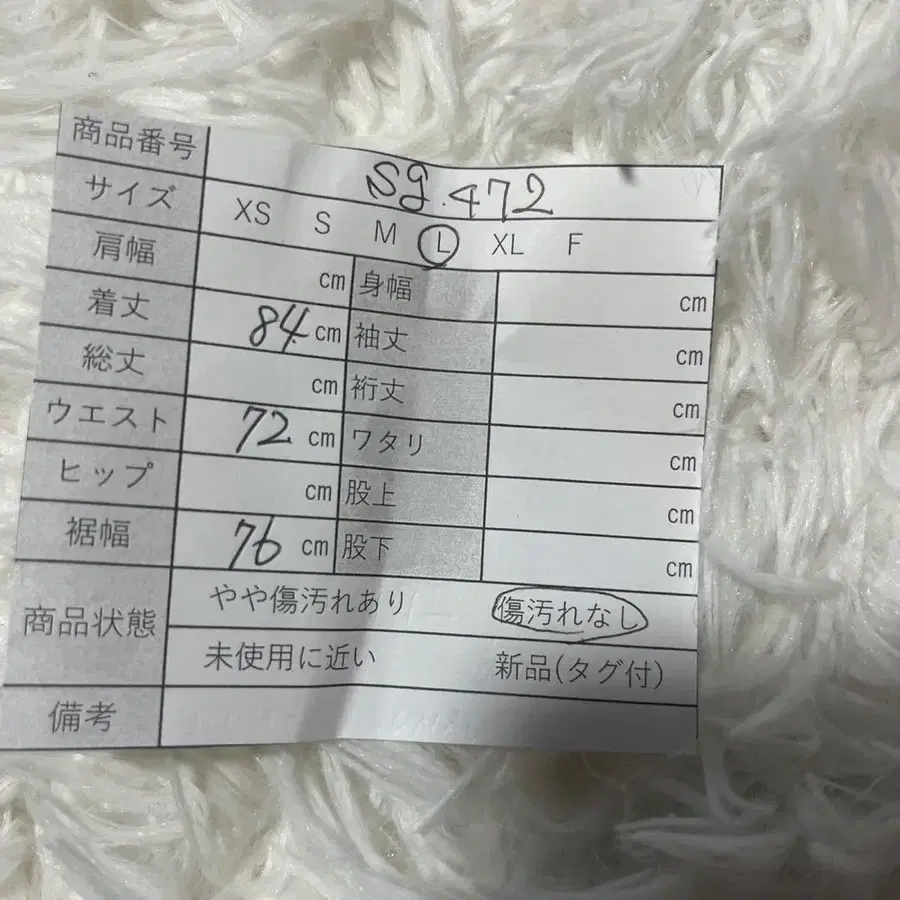 商品番号 sg.472
サイズ XS S M L XL F
肩幅 cm 身幅 cm
着丈 84 cm 袖丈 cm
総丈 cm 裄丈 cm
ウエスト 72 cm ワタリ cm
ヒップ cm 股上 cm
裾幅 76 cm 股下 cm
商品状態 やや傷汚れあり 傷汚れなし
未使用に近い 新品(タグ付)
備考